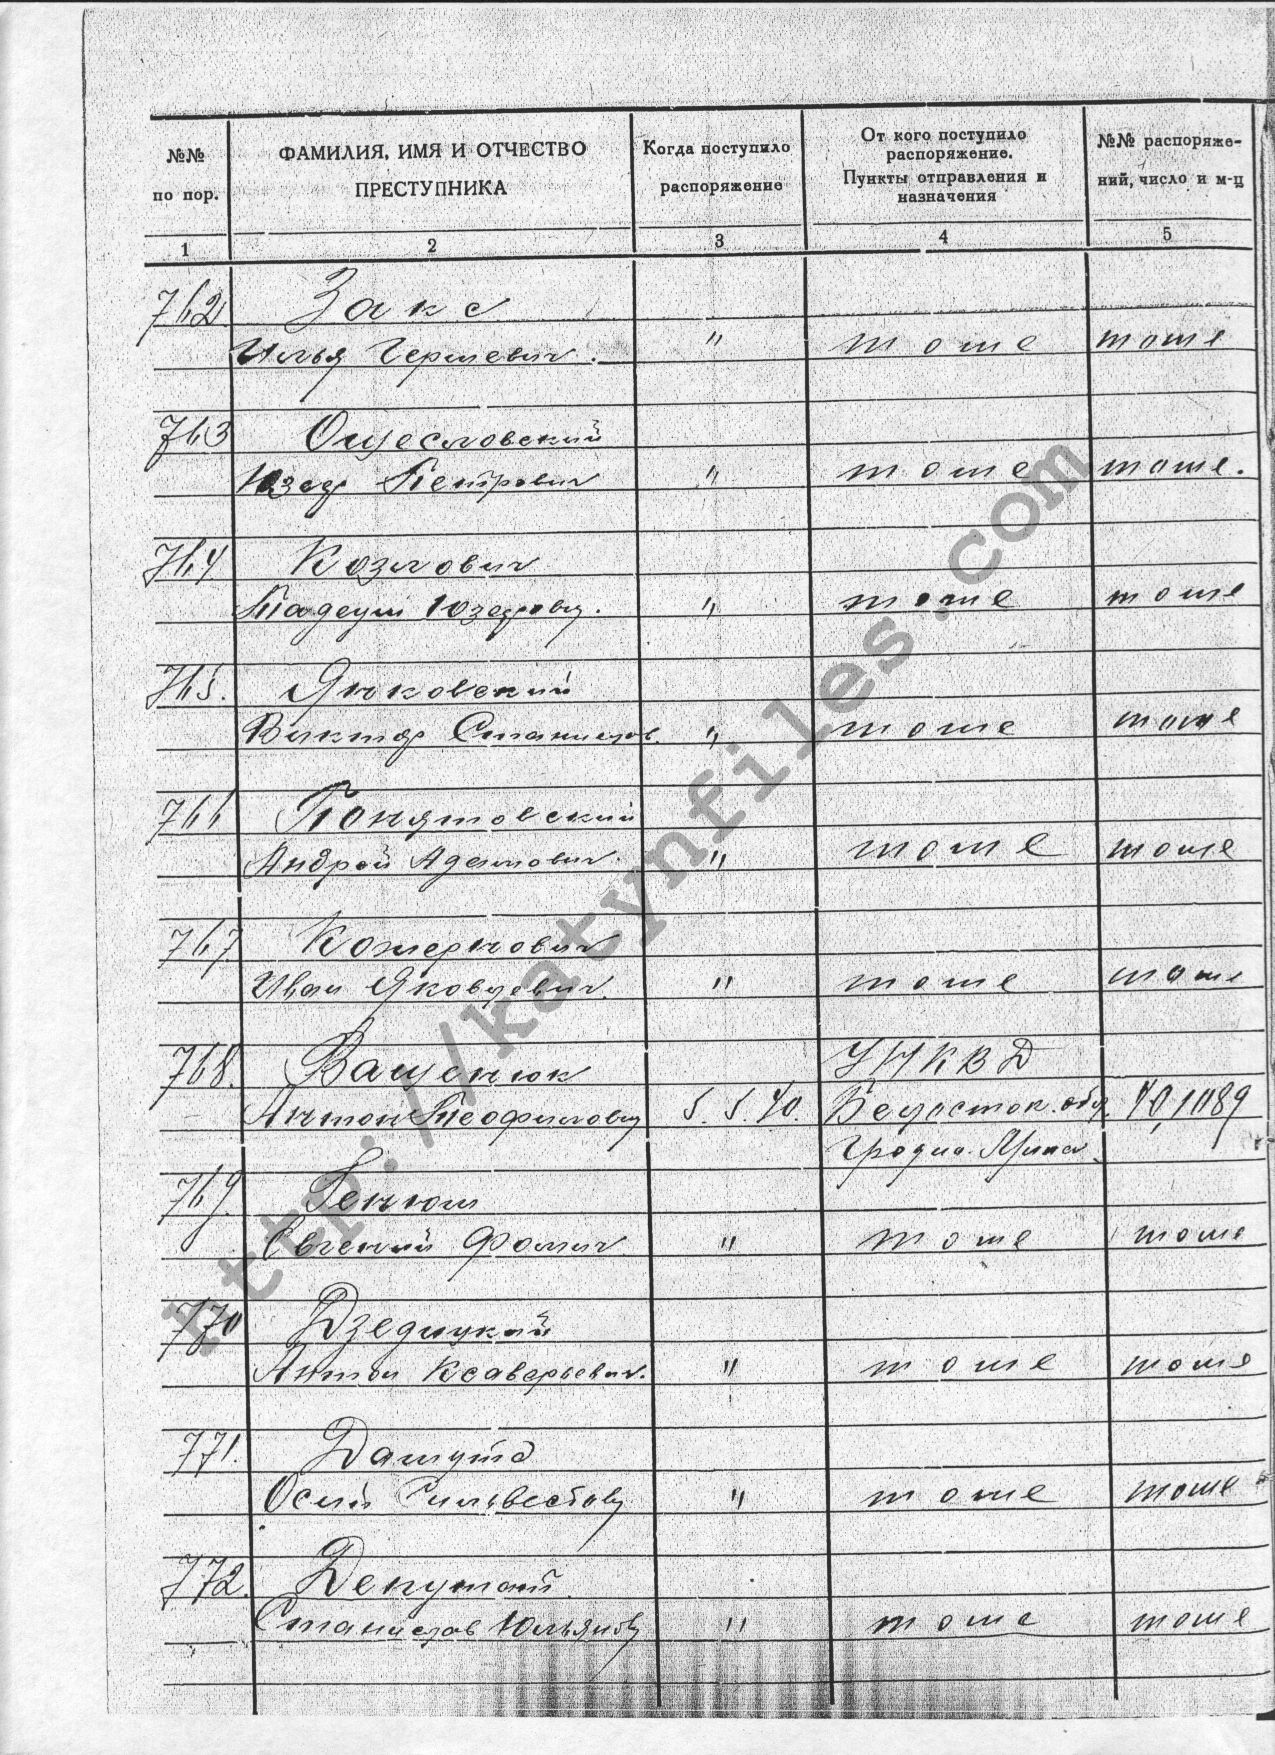 №№ по пор.
ФАМИЛИЯ, ИМЯ И ОТЧЕСТВО ПРЕСТУПНИКА
Когда поступило распоряжение
От кого поступило распоряжение. Пункты отправления и назначения
№№ распоряжений, число и м-ц
1 2 3 4 5
762. Закс
Илья Гершевич. " тоже тоже
763 Ощесловский
Юзеф Петрович " тоже тоже.
764 Козлович
Тадеуш Юзефович. " тоже тоже
765. Янковский
Виктор Станислов. " тоже тоже
766 Понятовский
Андрей Адамович. " тоже тоже
767 Кожернович
Иван Яковлевич. " тоже тоже
768. Ващенюк УНКВД
Антон Теофилович 5.5.40. Белосток. обл.
Гродно.
769. Генюш
Евгений Фомич " тоже тоже
770 Дзедицкий
Антон Ксаверьевич. " тоже тоже
771. Дашута
Осип " тоже тоже
772. Депутат
Станислав " тоже тоже
http://katynfiles.com